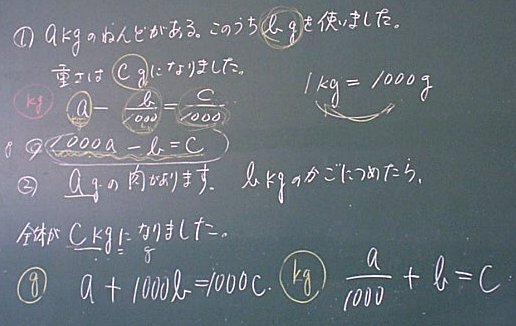 ① akgのねんどがある。このうちbgを使いました。
重さはCgになりました。
1kg = 1000g
kg a - b/1000 = c/1000
g 1000a - b = c
② agの肉があります。 bkgのかごにつめたら、
全体がCkgになりました。
g
g a + 1000b = 1000c. kg a/1000 + b = c